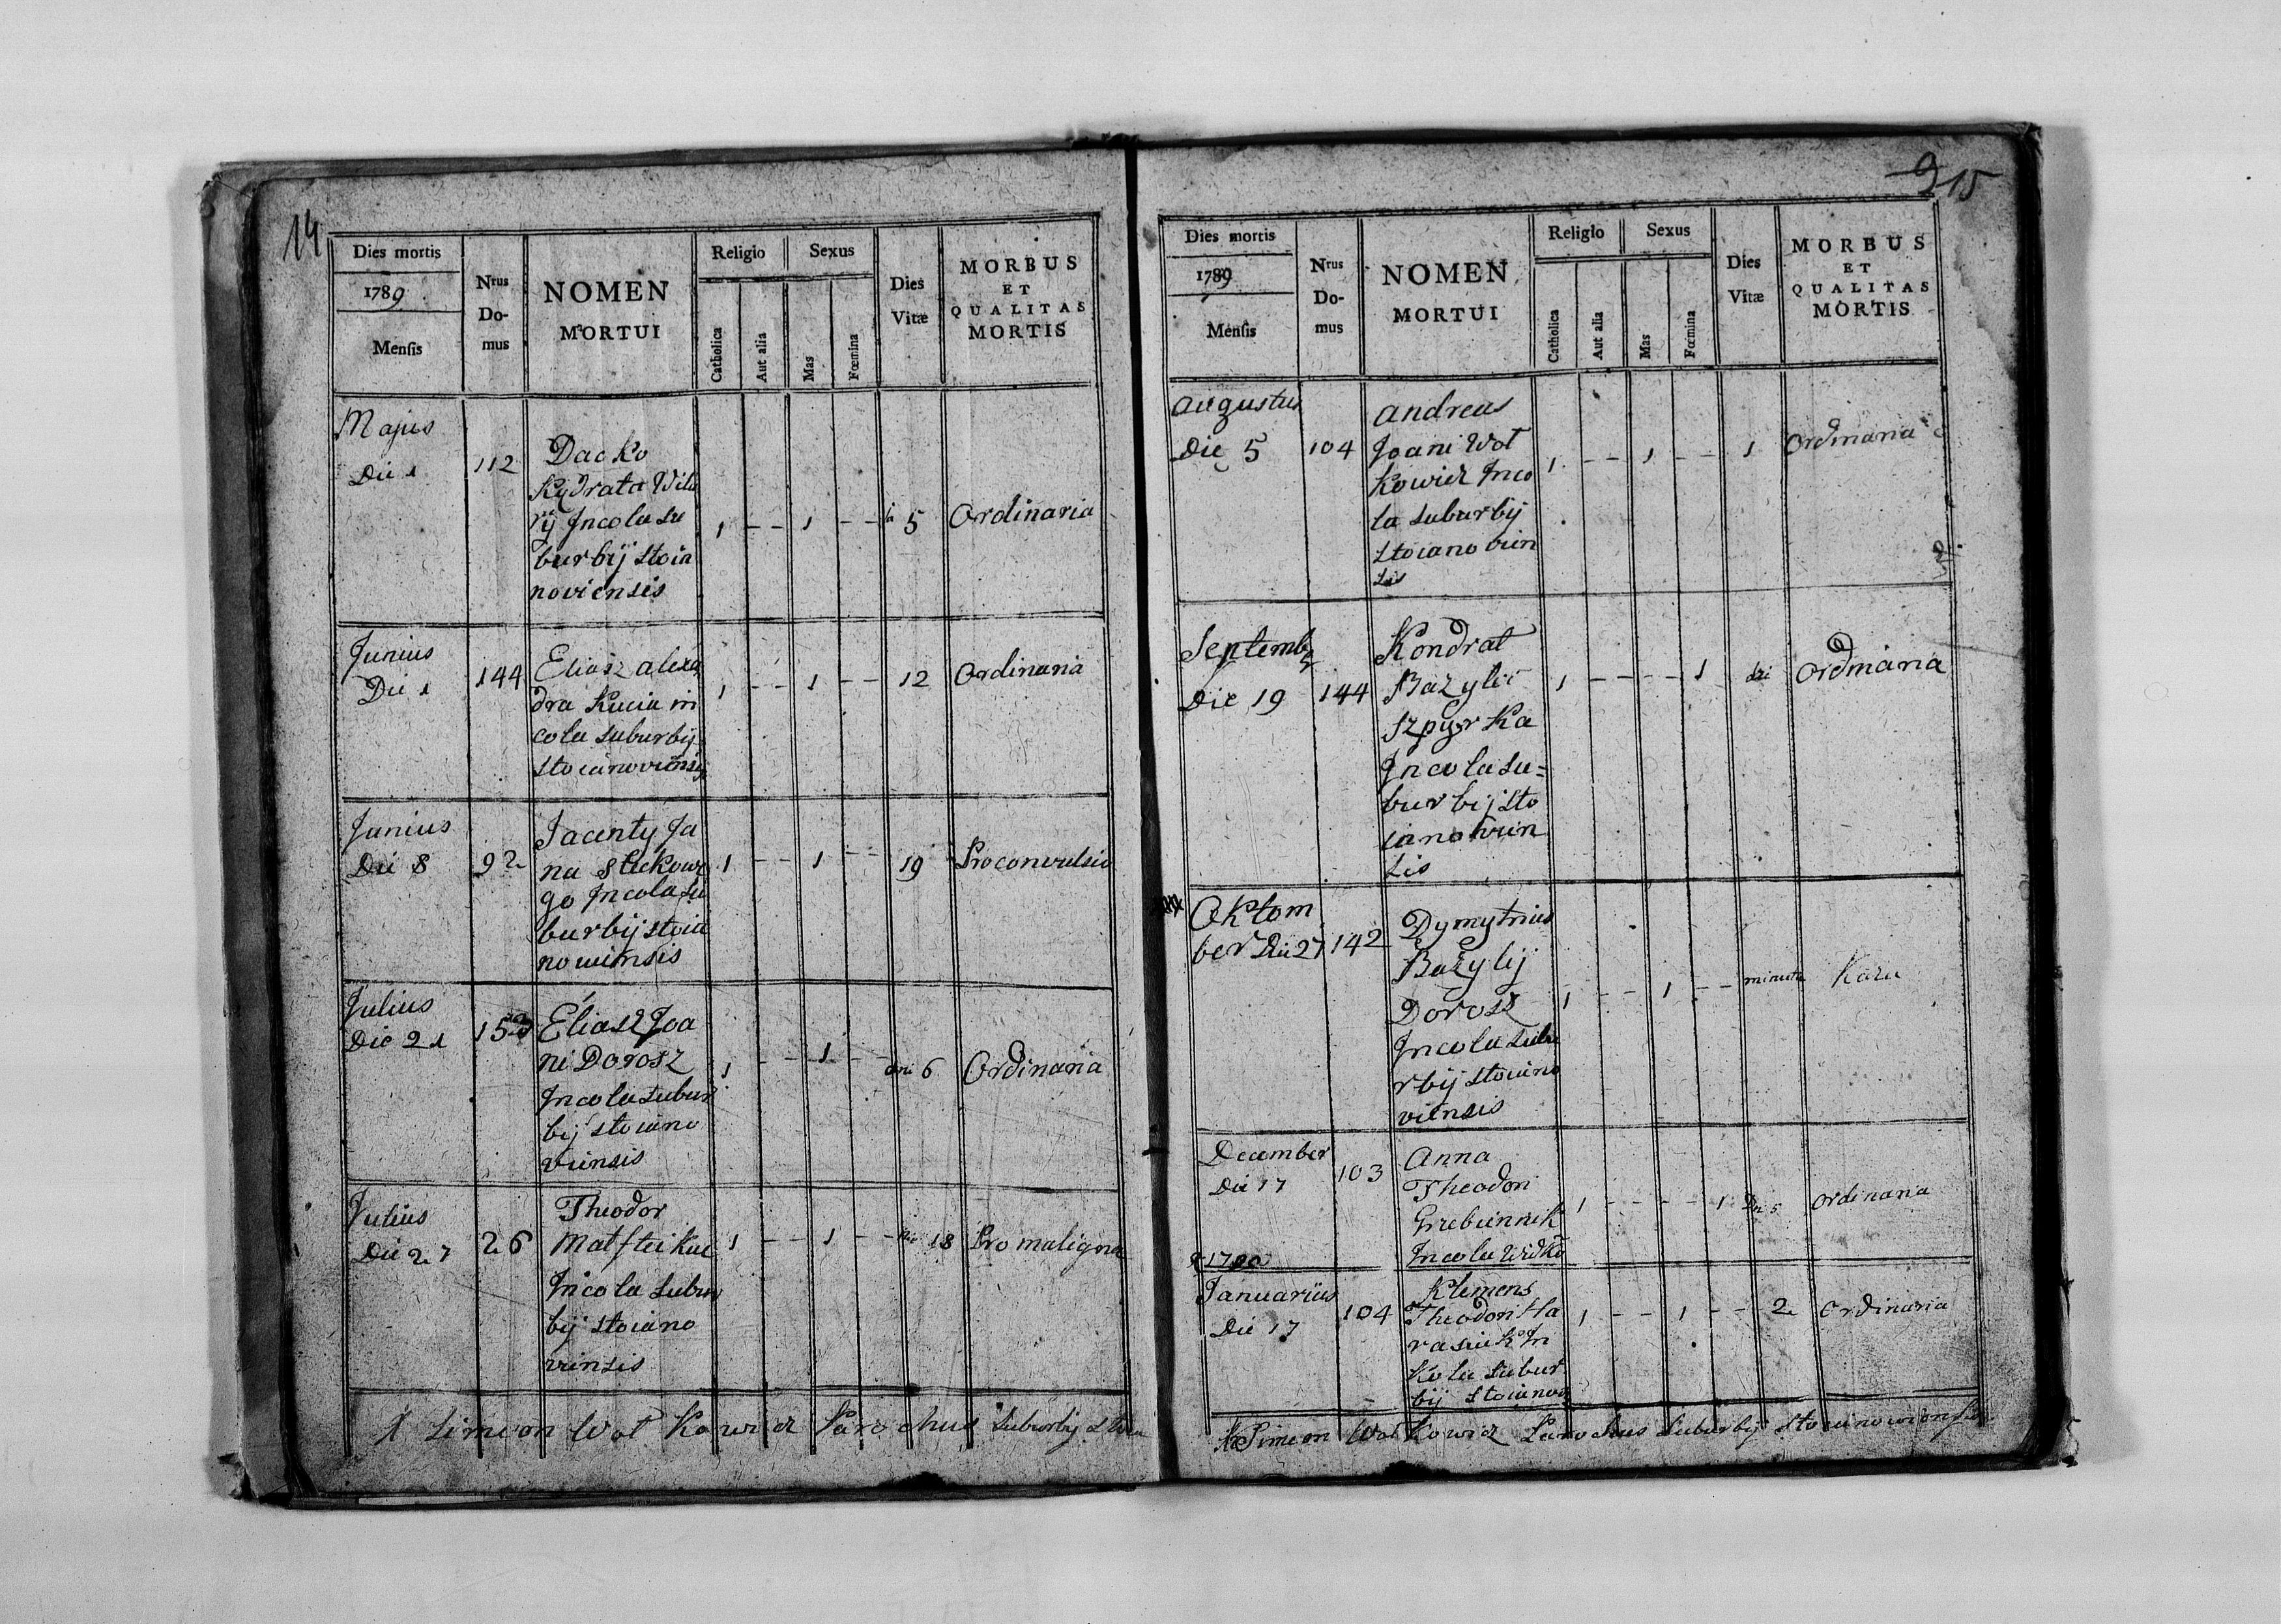 14
Dies mortis
1789
Mensis
Nrus Do-mus
NOMEN
MORTUI
Religio
Catholica
Aut alia
Sexus
Mas
Fœmina
Dies
Vitæ
MORBUS
ET
QUALITAS
MORTIS
Majus
Die 1
112
Dacko
Kydrata
ij Incola su
burbij stoia
noviensis
1 - - 1 - - 5
Ordinaria
Junius
Die 1
144
Eliasz alexa
dra Kucia in
cola suburbij
stoianoviensis
1 - - 1 - - 12
Ordinaria
Junius
Die 8
92
Jacenty Ja
na
go Incola su
burbij stoia
nowiensis
1 - - 1 - - 19
Pro convulsio
Julius
Die 21
153
Eliasz Joa
ni Dorosz
Incola subur
bij stoiano
viensis
1 - - 1 - - 6
Ordinaria
Julius
Die 27
26
Theodor
Matftei Kuc
Incola subur
bij stoiano
viensis
1 - - 1 - - 18
Pro maligna
X Simeon Wol Kowicz Parochus suburbij
9 15
Dies mortis
1789
Mensis
Nrus Do-mus
NOMEN
MORTUI
Religio
Catholica
Aut alia
Sexus
Mas
Fœmina
Dies
Vitæ
MORBUS
ET
QUALITAS
MORTIS
Augustus
Die 5
104
Andreas
Joani Wol
Kowicz Inco
la suburbij
stoianovien
sis
1 - - 1 - - 1
Ordinaria
Septemb
Die 19
144
Kondrat
Bazylii
Szpyrka
Incola su=
burbij sto
ianowien
sis
1 - - - - 1
Ordinaria
Oktom
ber Die 27
142
Dymytrius
Bazylij
Dorosz
Incola subu
rbij stoiano
viensis
1 - - 1 - - minuta
Kazu
December
Die 17
103
Anna
Theodori
Grzebiennik
Incola
1 - - - - 1 5
Ordinaria
1790
Januarius
Die 17
104
Klemens
Theodori Ha
rasiuk In
kola subur
bij stoianov
1 - - 1 - - 2
Ordinaria
X Simeon Wol Kowicz Parochus suburbij stoianowiensis